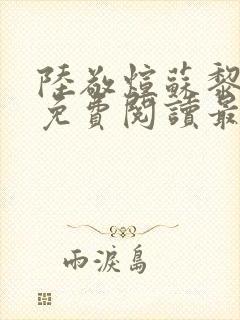 陸敬煊蘇黎
免費閱讀最
雨淚島